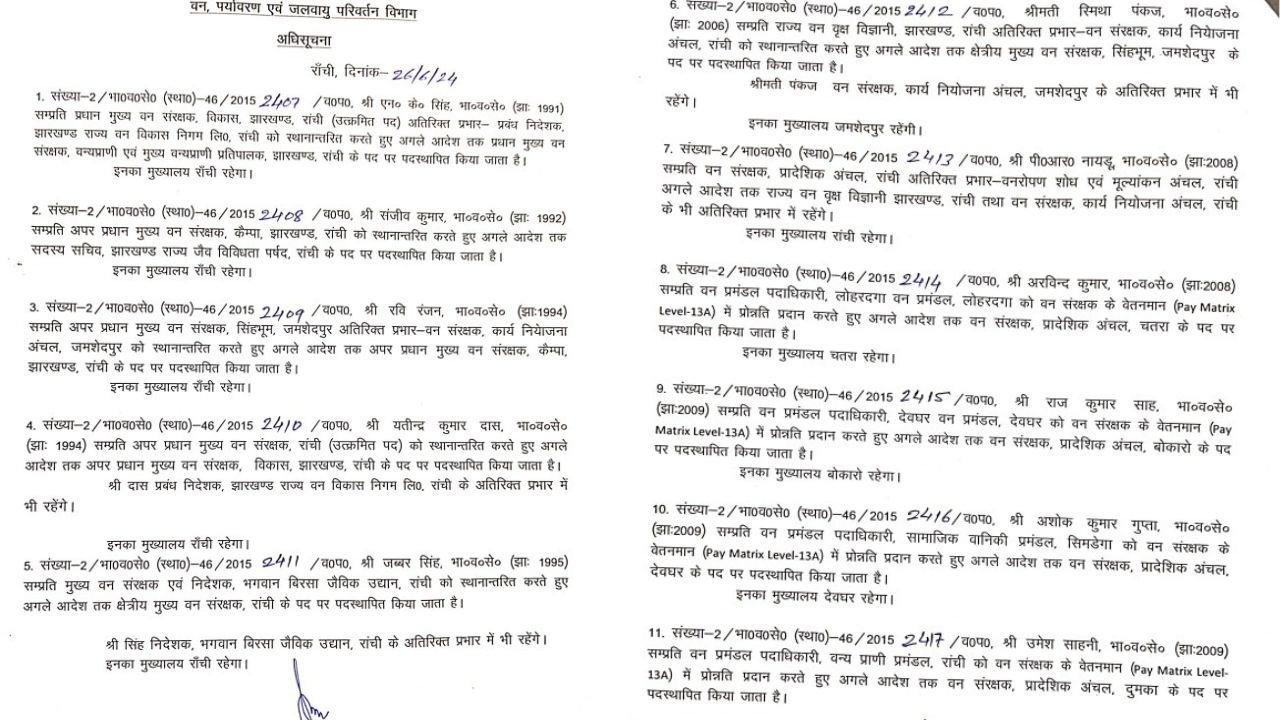 वन, पर्यावरण एवं जलवायु परिवर्तन विभाग
अधिसूचना
राँची, दिनांक– 26/6/24
1. संख्या–2/भा0व0से0 (स्था0)–46/2015 2407 /व0प0, श्री एन० के० सिंह, भा०व०से० (झाः 1991)
सम्प्रति प्रधान मुख्य वन संरक्षक, विकास, झारखण्ड, रांची (उत्क्रमित पद) अतिरिक्त प्रभार– प्रबंध निदेशक,
झारखण्ड राज्य वन विकास निगम लि0, रांची को स्थानान्तरित करते हुए अगले आदेश तक प्रधान मुख्य वन
संरक्षक, वन्यप्राणी एवं मुख्य वन्यप्राणी प्रतिपालक, झारखण्ड, रांची के पद पर पदस्थापित किया जाता है।
इनका मुख्यालय राँची रहेगा।
2. संख्या–2/भा0व0से0 (स्था0)–46/2015 2408 /व0प0, श्री संजीव कुमार, भा०व०से० (झाः 1992)
सम्प्रति अपर प्रधान मुख्य वन संरक्षक, कैम्पा, झारखण्ड, रांची को स्थानान्तरित करते हुए अगले आदेश तक
सदस्य सचिव, झारखण्ड राज्य जैव विविधता पर्षद, रांची के पद पर पदस्थापित किया जाता है।
इनका मुख्यालय राँची रहेगा।
3. संख्या–2/भा0व0से0 (स्था0)–46/2015 2409 /व0प0, श्री रवि रंजन, भा०व०से० (झाः1994)
सम्प्रति अपर प्रधान मुख्य वन संरक्षक, सिंहभूम, जमशेदपुर अतिरिक्त प्रभार–वन संरक्षक, कार्य नियोजना
अंचल, जमशेदपुर को स्थानान्तरित करते हुए अगले आदेश तक अपर प्रधान मुख्य वन संरक्षक, कैम्पा,
झारखण्ड, रांची के पद पर पदस्थापित किया जाता है।
इनका मुख्यालय राँची रहेगा।
4. संख्या–2/भा0व0से0 (स्था0)–46/2015 2410 /व0प0, श्री यतीन्द्र कुमार दास, भा०व०से०
(झाः 1994) सम्प्रति अपर प्रधान मुख्य वन संरक्षक, रांची (उत्क्रमित पद) को स्थानान्तरित करते हुए अगले
आदेश तक अपर प्रधान मुख्य वन संरक्षक, विकास, झारखण्ड, रांची के पद पर पदस्थापित किया जाता है।
श्री दास प्रबंध निदेशक, झारखण्ड राज्य वन विकास निगम लि0, रांची के अतिरिक्त प्रभार में
भी रहेंगे।
इनका मुख्यालय राँची रहेगा।
5. संख्या–2/भा0व0से0 (स्था0)–46/2015 2411 /व0प0, श्री जब्बर सिंह, भा०व०से० (झाः 1995)
सम्प्रति मुख्य वन संरक्षक एवं निदेशक, भगवान बिरसा जैविक उद्यान, रांची को स्थानान्तरित करते हुए
अगले आदेश तक क्षेत्रीय मुख्य वन संरक्षक, रांची के पद पर पदस्थापित किया जाता है।
श्री सिंह निदेशक, भगवान बिरसा जैविक उद्यान, रांची के अतिरिक्त प्रभार में भी रहेंगे।
इनका मुख्यालय रांची रहेगा।
6. संख्या–2/भा0व0से0 (स्था0)–46/2015 2412 /व0प0, श्रीमती स्मिथा पंकज, भा०व०से०
(झाः 2006) सम्प्रति राज्य वन वृक्ष विज्ञानी, झारखण्ड, रांची अतिरिक्त प्रभार–वन संरक्षक, कार्य नियोजना
अंचल, रांची को स्थानान्तरित करते हुए अगले आदेश तक क्षेत्रीय मुख्य वन संरक्षक, सिंहभूम, जमशेदपुर के
पद पर पदस्थापित किया जाता है।
श्रीमती पंकज वन संरक्षक, कार्य नियोजना अंचल, जमशेदपुर के अतिरिक्त प्रभार में भी
रहेंगे।
इनका मुख्यालय जमशेदपुर रहेंगी।
7. संख्या–2/भा0व0से0 (स्था0)–46/2015 2413 /व0प0, श्री पी0आर0 नायडू, भा०व०से० (झाः2008)
सम्प्रति वन संरक्षक, प्रादेशिक अंचल, रांची अतिरिक्त प्रभार–वनरोपण शोध एवं मूल्यांकन अंचल, रांची
अगले आदेश तक राज्य वन वृक्ष विज्ञानी झारखण्ड, रांची तथा वन संरक्षक, कार्य नियोजना अंचल, रांची
के भी अतिरिक्त प्रभार में रहेंगे।
इनका मुख्यालय रांची रहेगा।
8. संख्या–2/भा0व0से0 (स्था0)–46/2015 2414 /व0प0, श्री अरविन्द कुमार, भा०व०से० (झाः2008)
सम्प्रति वन प्रमंडल पदाधिकारी, लोहरदगा वन प्रमंडल, लोहरदगा को वन संरक्षक के वेतनमान (Pay Matrix
Level-13A) में प्रोन्नति प्रदान करते हुए अगले आदेश तक वन संरक्षक, प्रादेशिक अंचल, चतरा के पद पर
पदस्थापित किया जाता है।
इनका मुख्यालय चतरा रहेगा।
9. संख्या–2/भा0व0से0 (स्था0)–46/2015 2415 /व0प0, श्री राज कुमार साह, भा०व०से०
(झाः2009) सम्प्रति वन प्रमंडल पदाधिकारी, देवघर वन प्रमंडल, देवघर को वन संरक्षक के वेतनमान (Pay
Matrix Level-13A) में प्रोन्नति प्रदान करते हुए अगले आदेश तक वन संरक्षक, प्रादेशिक अंचल, बोकारो के पद
पर पदस्थापित किया जाता है।
इनका मुख्यालय बोकारो रहेगा।
10. संख्या–2/भा0व0से0 (स्था0)–46/2015 2416 /व0प0, श्री अशोक कुमार गुप्ता, भा०व०से०
(झाः2009) सम्प्रति वन प्रमंडल पदाधिकारी, सामाजिक वानिकी प्रमंडल, सिमडेगा को वन संरक्षक के
वेतनमान (Pay Matrix Level-13A) में प्रोन्नति प्रदान करते हुए अगले आदेश तक वन संरक्षक, प्रादेशिक अंचल,
देवघर के पद पर पदस्थापित किया जाता है।
इनका मुख्यालय देवघर रहेगा।
11. संख्या–2/भा0व0से0 (स्था0)–46/2015 2417 /व0प0, श्री उमेश साहनी, भा०व०से० (झाः2009)
सम्प्रति वन प्रमंडल पदाधिकारी, वन्य प्राणी प्रमंडल, रांची को वन संरक्षक के वेतनमान (Pay Matrix Level-
13A) में प्रोन्नति प्रदान करते हुए अगले आदेश तक वन संरक्षक, प्रादेशिक अंचल, दुमका के पद पर
पदस्थापित किया जाता है।